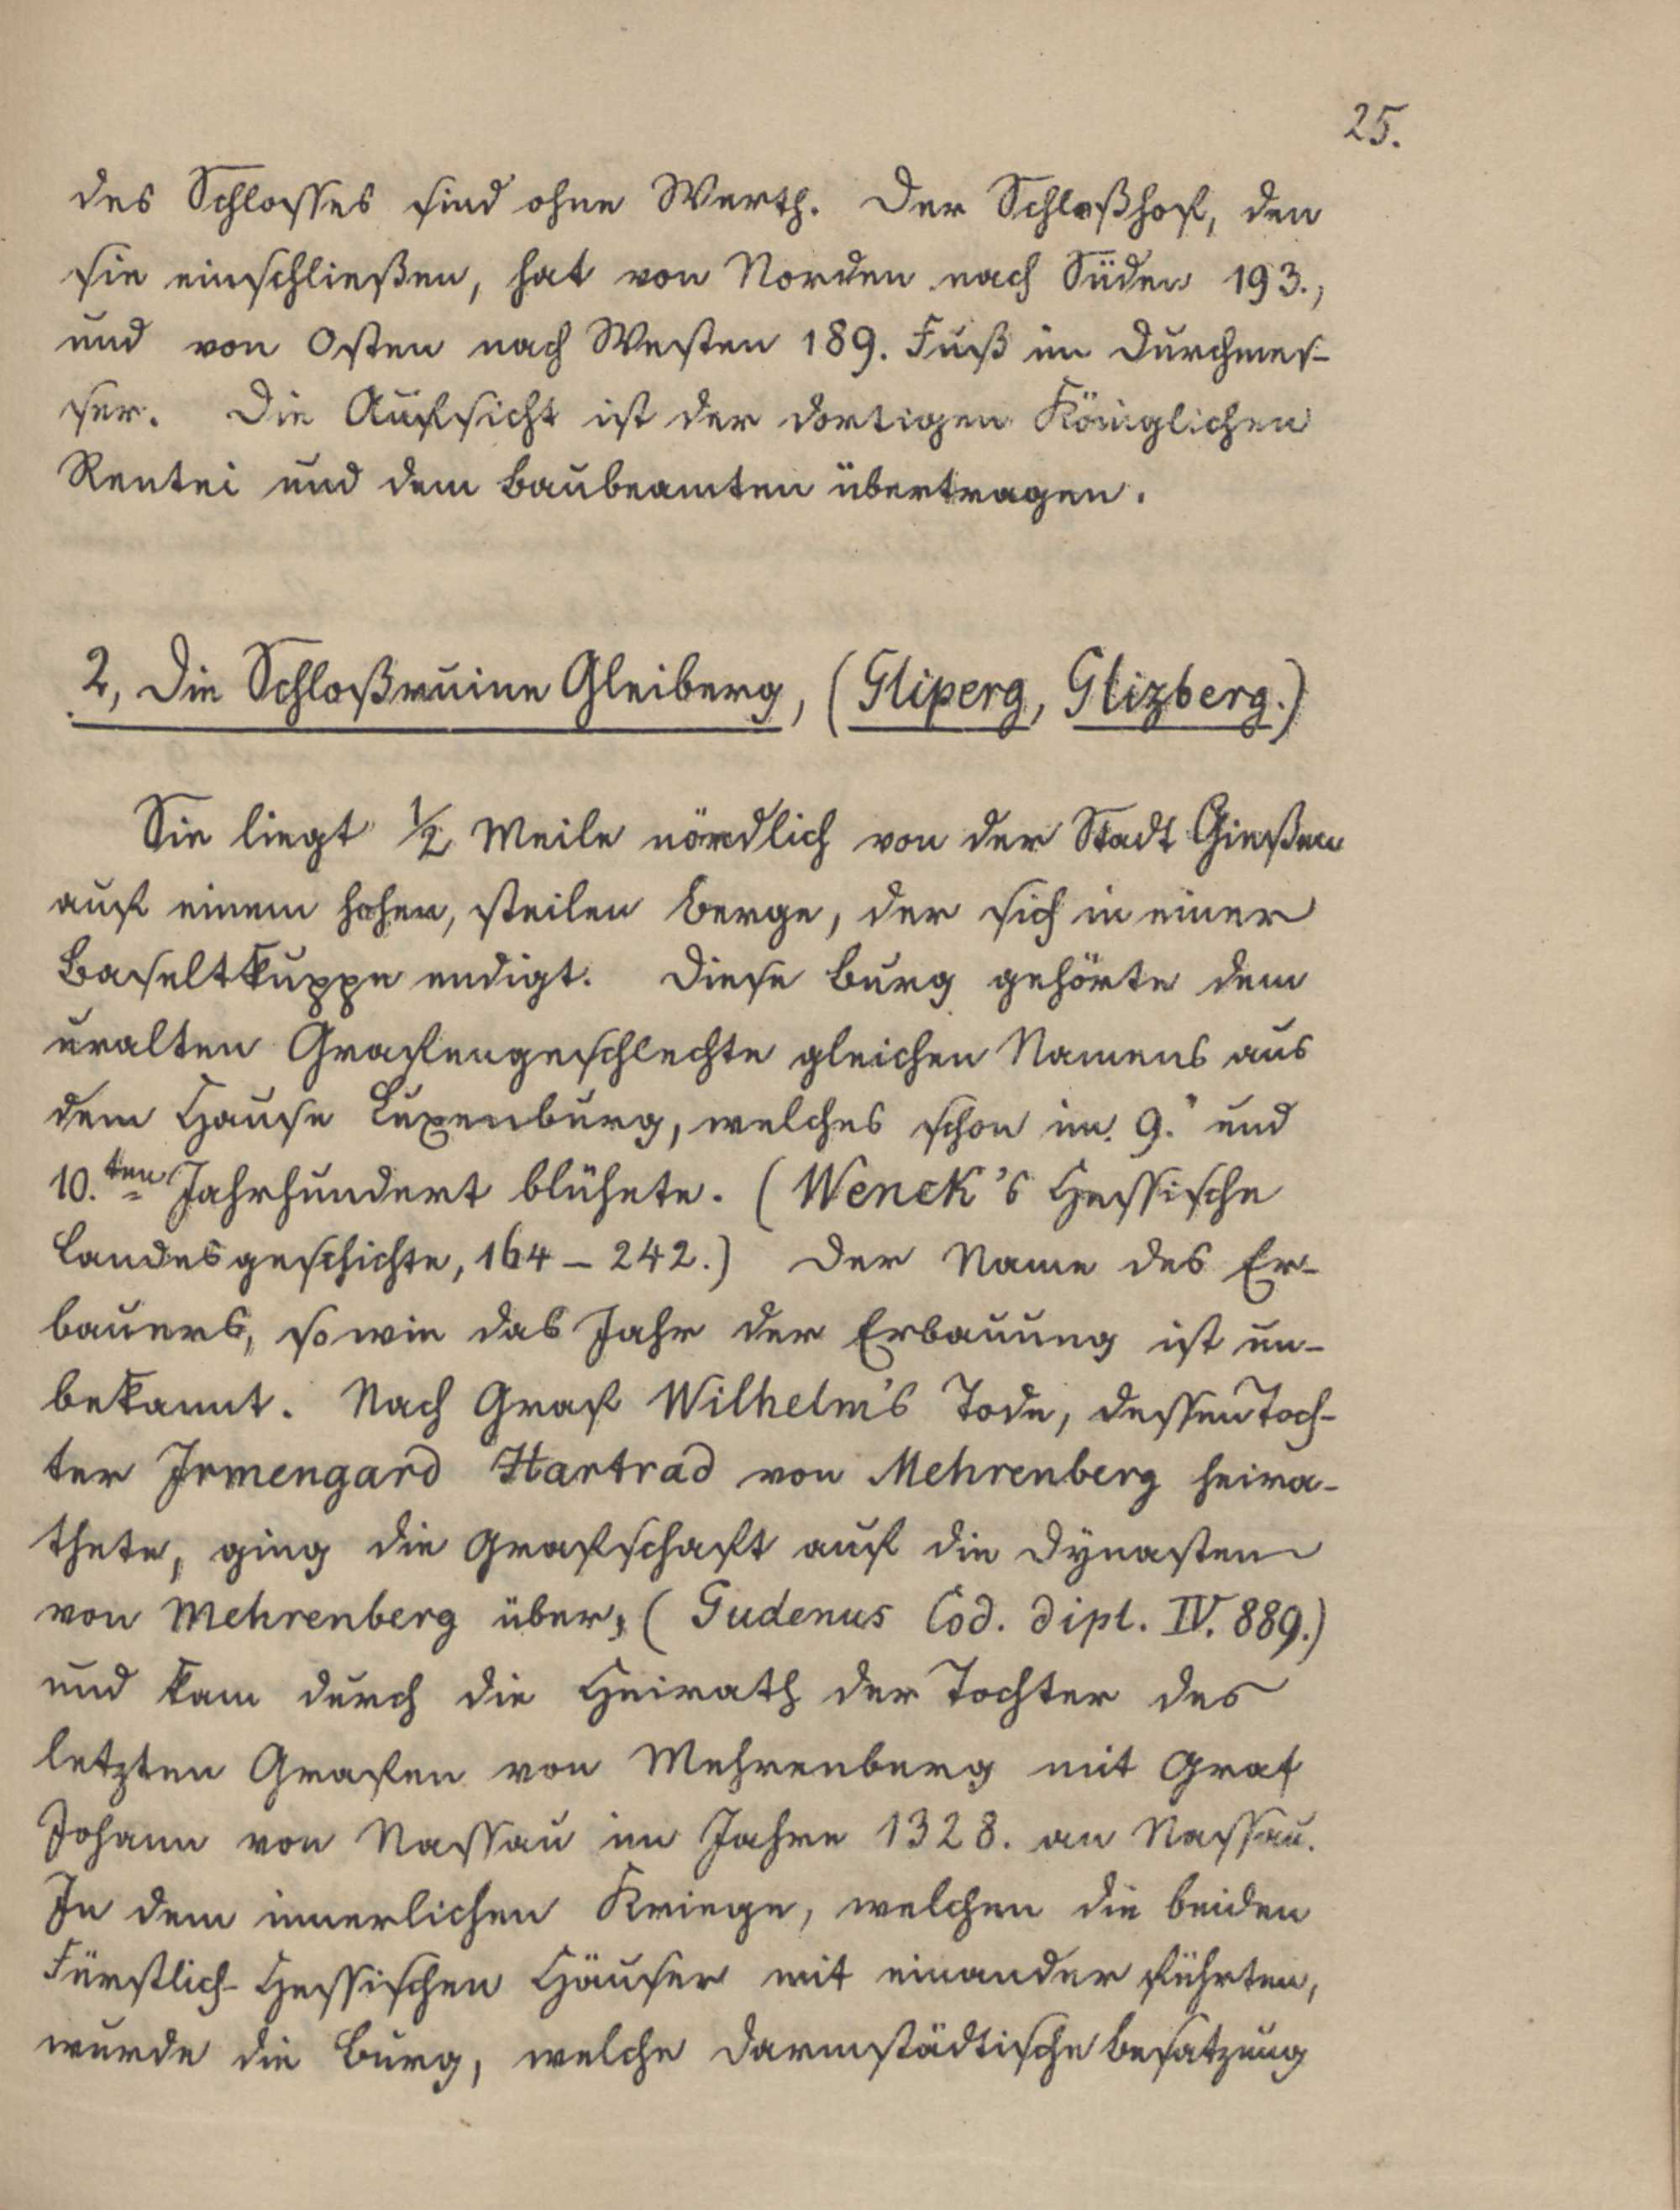 25.
des Schlosses sind ohne Werth. Der Schloßhof, den
sie einschließen, hat von Norden nach Süden 193.,
und von Osten nach Westen 189. Fuß im Durchmes-
ser. Die Aufsicht ist der dortigen Königlichen
Rentei und dem Baubeamten übertragen.
2, Die Schloßruine Gleiberg, (Gliperg, Glizberg.)
Sie liegt 1/2 Meile nördlich von der Stadt Gießen
auf einem hohen, steilen Berge, der sich in einer
Basaltkuppe endigt. Diese Burg gehörte dem
uralten Grafengeschlechte gleichen Namens aus
dem Hause Luxenburg, welches schon im 9." und
10.ten Jahrhundert blühete. (Wenck's Hessische
Landesgeschichte, 164 – 242.) Der Name des Er-
bauers, sowie das Jahr der Erbauung ist un-
bekannt. Nach Graf Wilhelm's Tode, dessen Toch-
ter Irmengard Hartrad von Mehrenberg heira-
thete, ging die Grafschaft auf die Dynasten
von Mehrenberg über, (Gudenus Cod. dipl. IV. 889.)
und kam durch die Heirath der Tochter des
letzten Grafen von Mehrenberg mit Graf
Johann von Nassau im Jahre 1328. an Nassau.
In dem innerlichen Kriege, welchen die beiden
Fürstlich-Hessischen Häuser mit einander führten,
wurde die Burg, welche Darmstädtische Besatzung